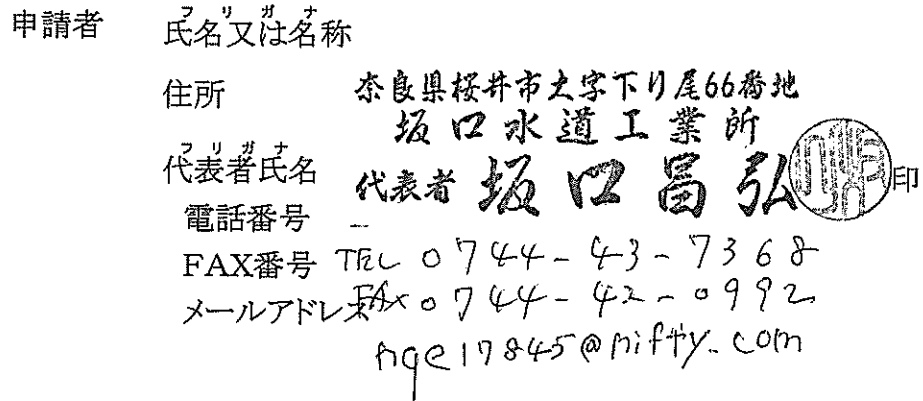 申請者 氏名又は名称 フリガナ
住所 奈良県桜井市大字下り尾66番地
坂口水道工業所
代表者氏名 フリガナ 代表者 坂口昌弘 印
電話番号
FAX番号 TEL 0744-43-7368
メールアドレス FAX 0744-42-0992
nqe17845@nifty.com